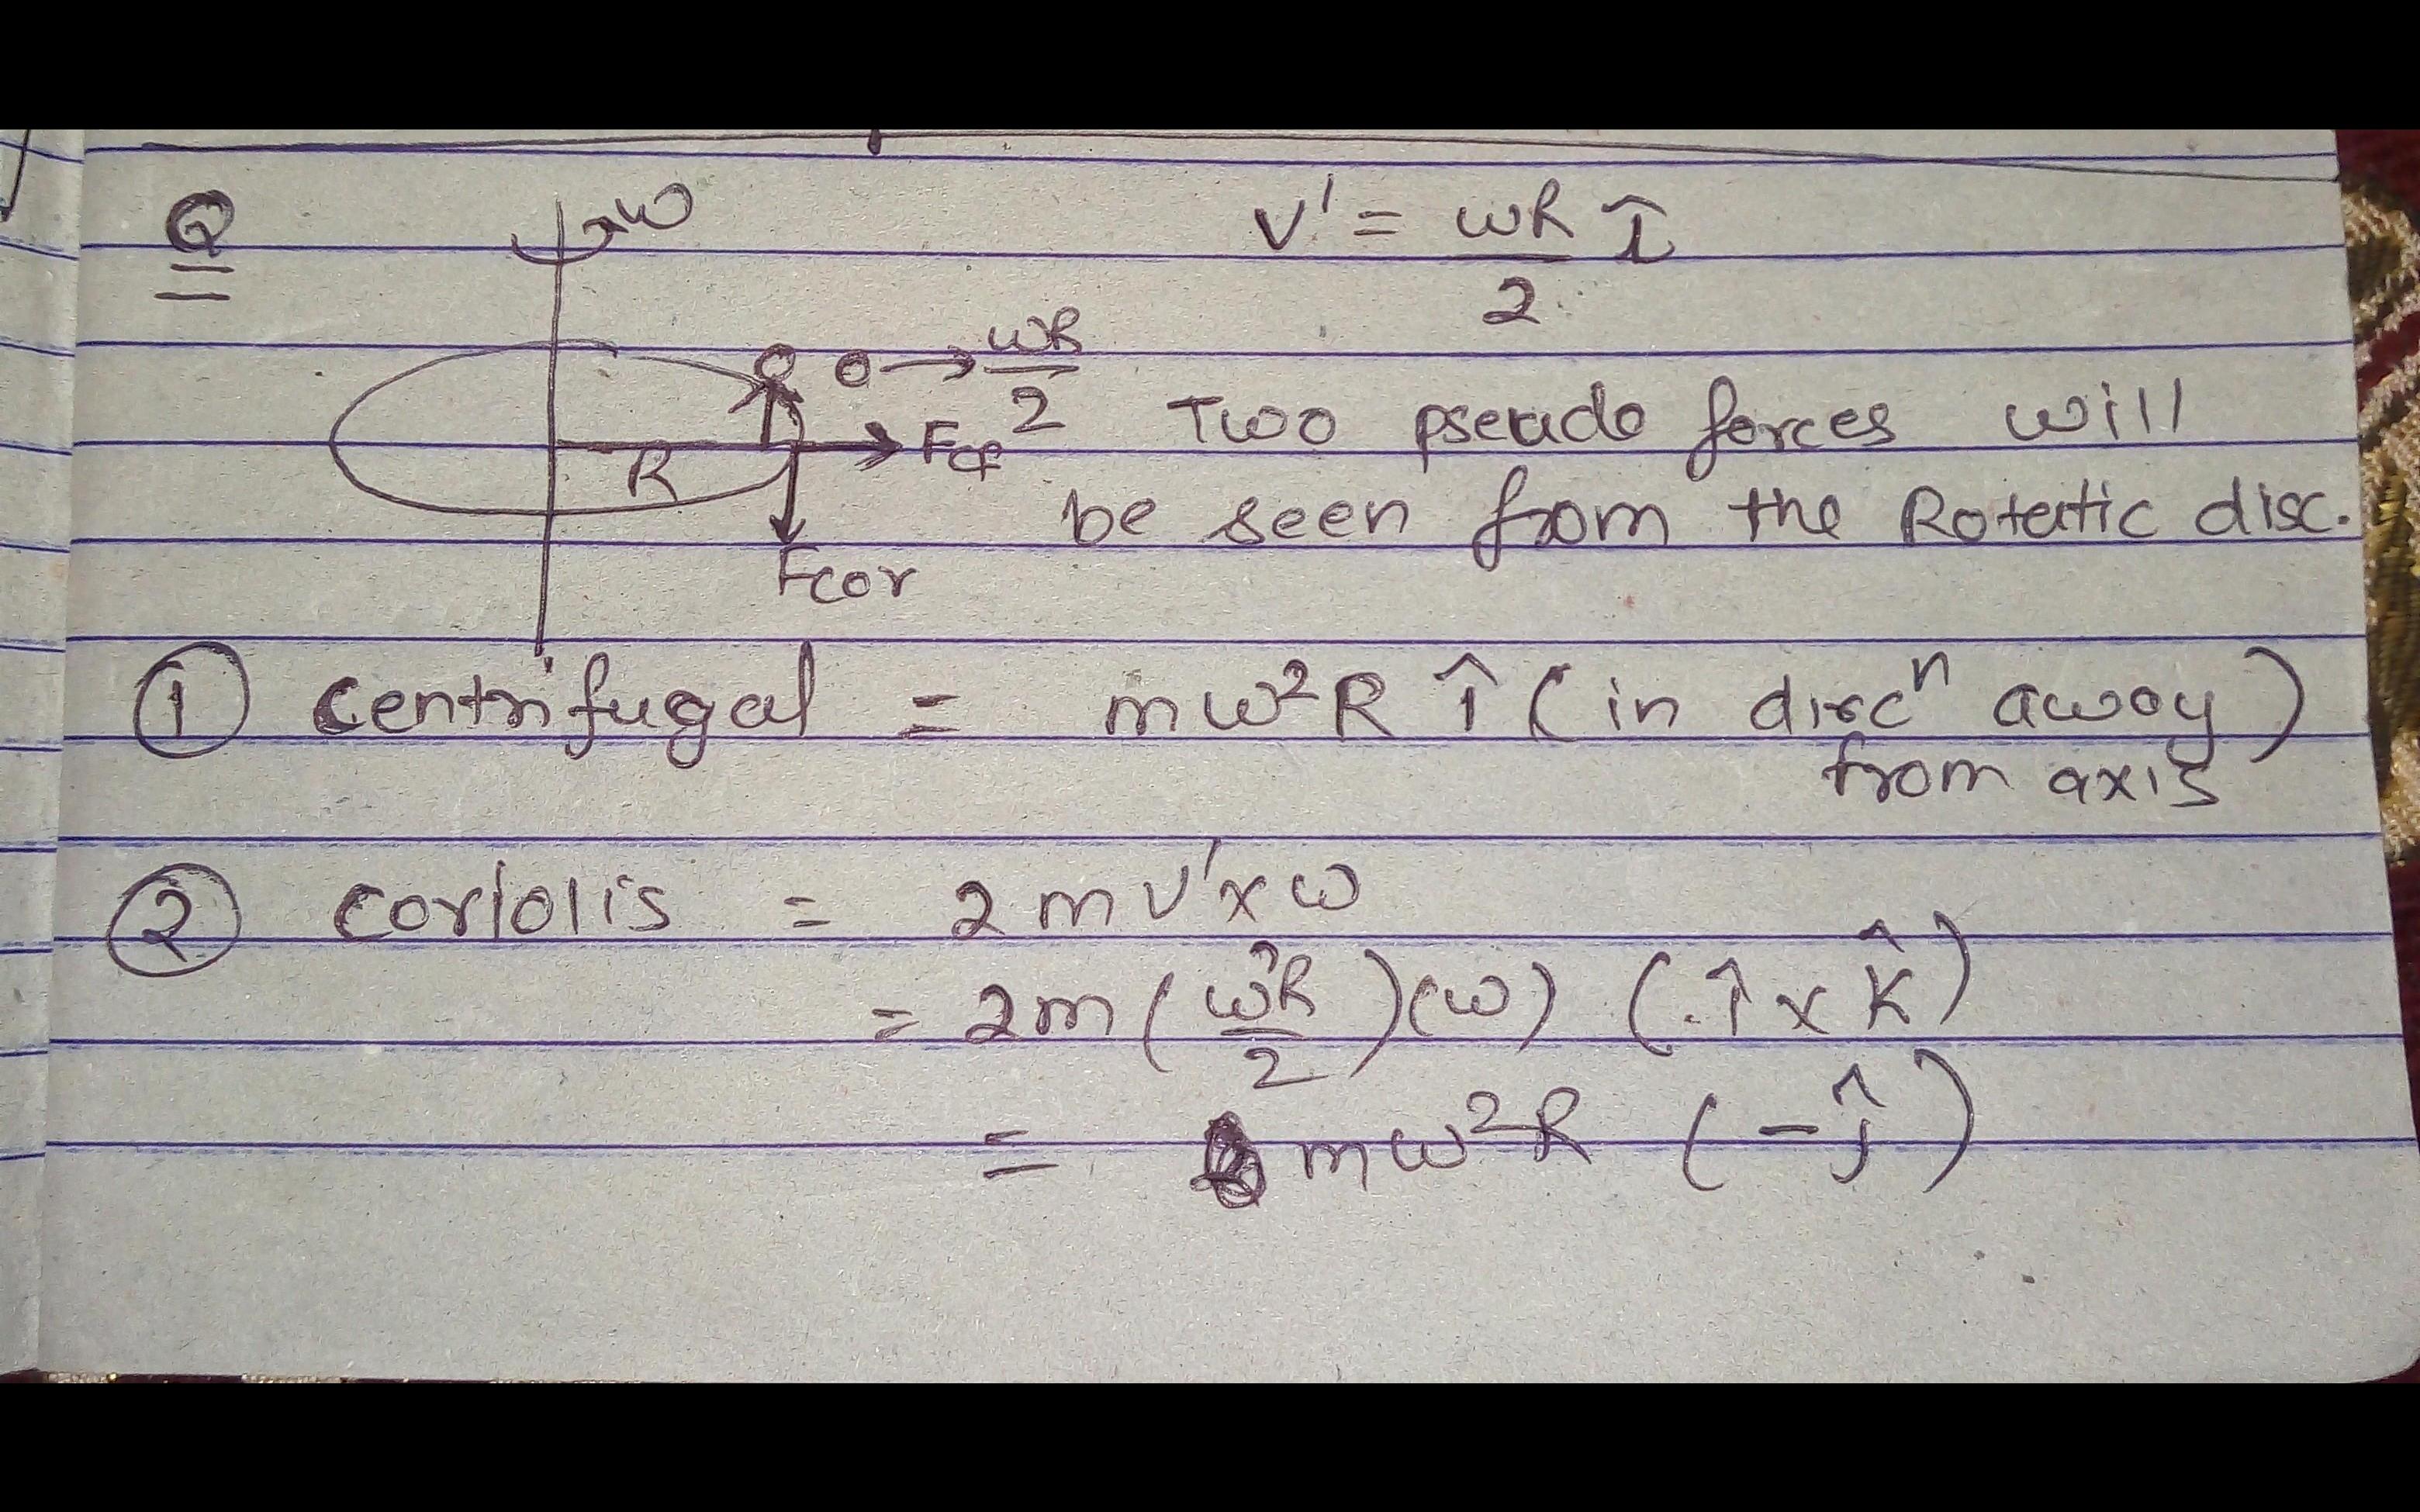 Q
ω
v' = ωR/2 î
0 → ωR/2
R
Fcf
Two pseudo forces will
be seen from the Rotatic disc.
Fcor
① centrifugal = mω²R î (in dircⁿ away)
from axis
② coriolis = 2mv'×ω
= 2m(ωR/2)(ω) (î × k̂)
= mω²R (-ĵ)